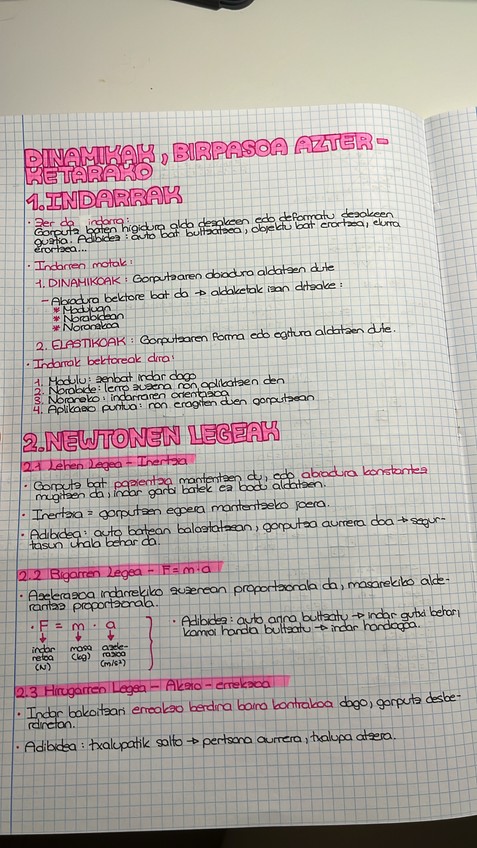 DINAMIKAK, BIRPASOA AZTER-
KETARAKO
1. INDARRAK
· Zer da indarra:
Gorputz baten higidura alda dezakeen edo deformatu dezakeen
guztia. Adibidez: auto bat bultzatzea, objektu bat erortzea, elurra
erortzea...
· Indarren motak:
1. DINAMIKOAK: Gorputzaren abiadura aldatzen dute
- Abiadura bektore bat da → aldaketak izan ditzake:
* Moduluan
* Norabidean
* Noranzkoa
2. ELASTIKOAK: Gorputzaren forma edo egitura aldatzen dute.
· Indarrak bektoreak dira:
1. Modulu: zenbat indar dago
2. Norabide: lerro zuzena non aplikatzen den
3. Noranzko: indarraren orientazioa
4. Aplikazio puntua: non eragiten duen gorputzean
2. NEWTONEN LEGEAK
2.1 Lehen Legea - Inertzia
· Gorputz bat pazientzia mantentzen du, edo abiadura konstantez
mugitzen da, indar garbi batek ez badu aldatzen.
· Inertzia = gorputzen egoera mantentzeko joera.
· Adibidea: auto batean balaztatzean, gorputza aurrera doa → segur-
tasun uhala behar da.
2.2 Bigarren Legea - F=m·a
· Azelerazioa indarrekiko zuzenean proportzionala da, masarekiko alde-
rantziz proportzionala.
· F = m · a
indar netoa (N)
masa (kg)
azele-razioa (m/s²)
· Adibidea: auto arina bultzatu → indar gutxi behar;
kamoi handia bultzatu → indar handiagoa.
2.3 Hirugarren Legea - Akzio - erreakzioa
· Indar bakoitzari erreakzio berdina baina kontrakoa dago, gorputz desbe-
rdinetan.
· Adibidea: txalupatik salto → pertsona aurrera, txalupa atzera.